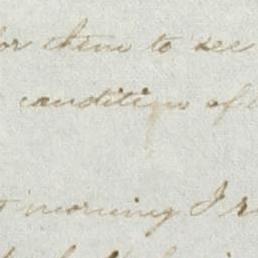 for them to see
condition of
morning I